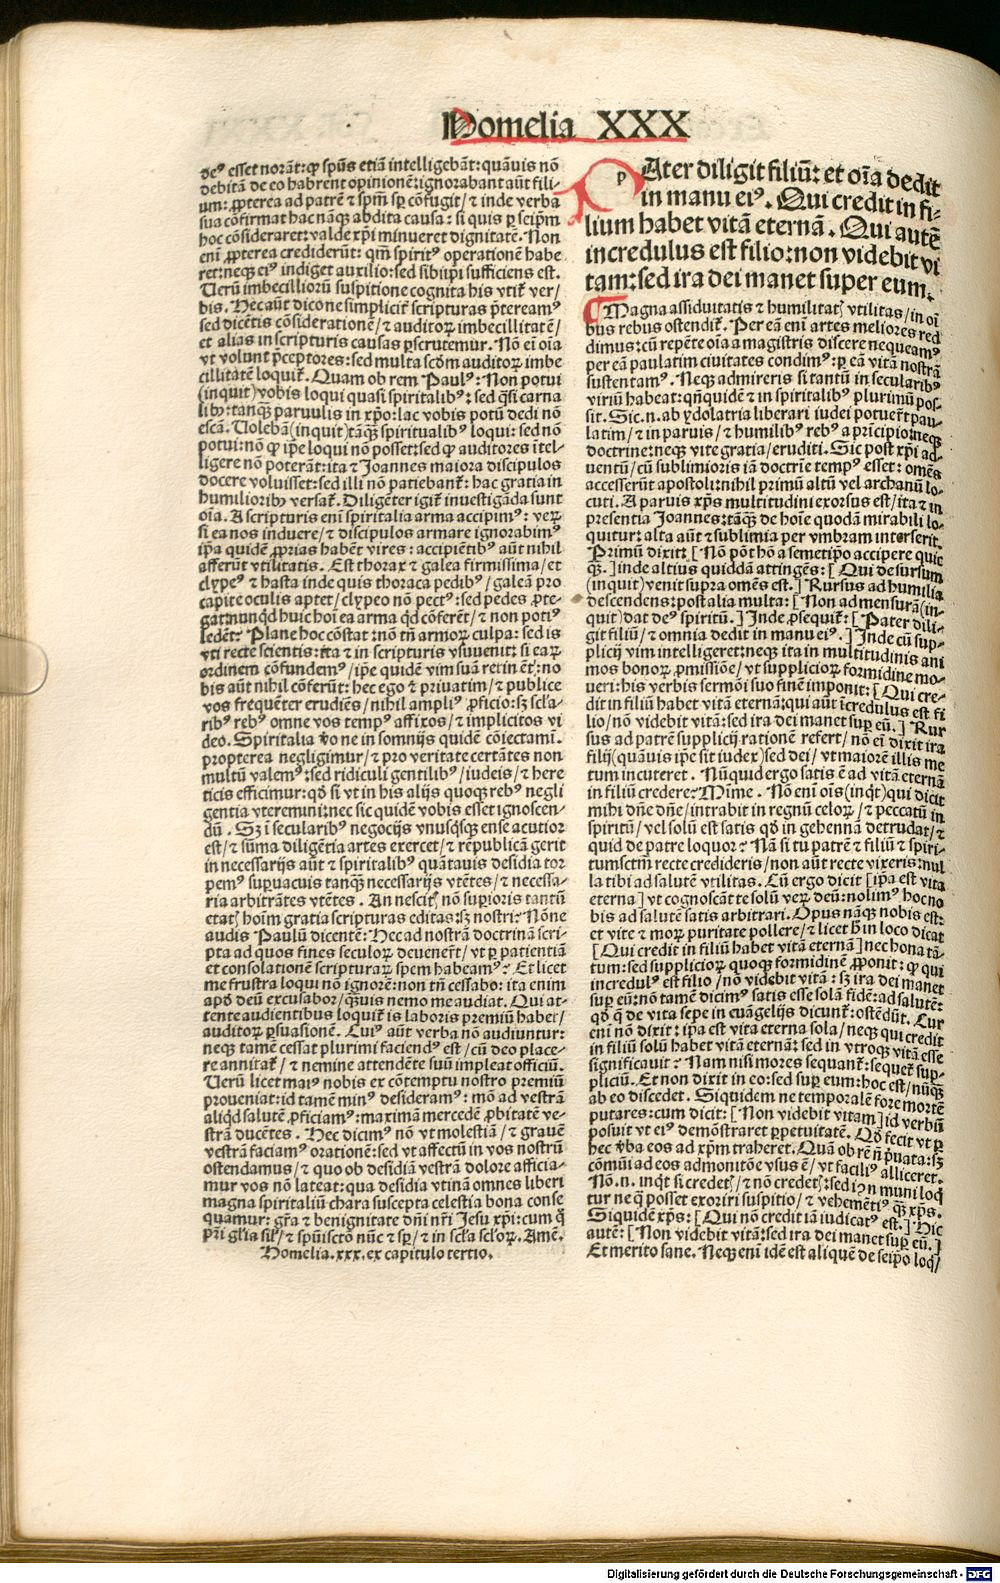 Homelia XXX
deꝰ esset norāt: qꝫ spūs etiā intelligebāt: quāuis nō
debitā de eo habrent opinionē: ignorabant aūt fili⸗
um: ꝓpterea ad patrē ⁊ spm̄ sꝑ cōfugit/ ⁊ inde verba
sua cōfirmat hac nāqꝫ abdita causa: si quis ꝑ seipm̄
hoc cōsideraret: valde xp̄i minueret dignitatē. Non
eni ꝓpterea crediderūt: qm̄ spiritꝰ operationē habe
ret: neqꝫ eiꝰ indiget auxilio: sed sibiipi sufficiens est.
Uerū imbecilliorū suspitione cognita his vtit̄ ver/
bis. Hec aūt dico ne simplicit̄ scripturas p̄tereamꝰ
sed dicētis cōsiderationē/ ⁊ auditoꝝ imbecillitatē/
et alias in scripturis causas ꝑscrutemur. Nō ei oīa
vt volunt p̄ceptores: sed multa scd̄m auditoꝝ imbe
cillitatē loquit̄. Quam ob rem Paulꝰ: Non potui
(inquit) vobis loqui quasi spiritalibꝰ: sed q̄si carna
libꝰ: tanqꝫ paruulis in xp̄o: lac vobis potū dedi nō
escā. Uolebā (inquit) tāqꝫ spiritualibꝰ loqui: sed nō
potui: nō qꝫ ip̄e loqui nō posset: sed qꝫ auditores ītel⸗
ligere nō poterāt: ita ⁊ Joannes maiora discipulos
docere voluisset: sed illi nō patiebant̄: hac gratia in
humilioribꝰ versat̄. Diligēter igit̄ inuestigāda sunt
oīa. A scripturis eni spiritalia arma accipimꝰ: veꝝ
si ea nos induere/ ⁊ discipulos armare ignorabimꝰ
ip̄a quidē ꝓprias habēt vires: accipiētibꝰ aūt nihil
afferūt vtilitatis. Est thorax ⁊ galea firmissima/ et
clypeꝰ ⁊ hasta inde quis thoraca pedibꝰ/ galeā pro
capite oculis aptet/ clypeo nō pectꝰ: sed pedes ꝓte⸗
gat: nunqd̄ huic hoi ea arma qd̄ cōferēt/ ⁊ non potiꝰ
ledēt? Plane hoc cōstat: nō tn̄ armoꝝ culpa: sed is
vti recte scientis: ita ⁊ in scripturis vsuuenit: si eaꝝ
ordinem cōfundemꝰ/ ip̄e quidē vim suā retinēt: no
bis aūt nihil cōferūt: hec ego ⁊ priuatim/ ⁊ publice
vos frequēter erudiēs/ nihil ampliꝰ ꝓficio: sꝫ scl̄a⸗
ribꝰ rebꝰ omne vos tempꝰ affixos/ ⁊ implicitos vi
deo. Spiritalia ꝟo ne in somnijs quidē cōiectami.
propterea negligimur/ ⁊ pro veritate certātes non
multū valemꝰ: sed ridiculi gentilibꝰ/ iudeis/ ⁊ here
ticis efficimur: qd̄ si vt in his alijs quoqꝫ rebꝰ negli
gentia vteremini: nec sic quidē vobis esset ignoscen⸗
dū. Sꝫ ī secularibꝰ negocijs vnusqsqꝫ ense acutior
est/ ⁊ sūma diligētia artes exercet/ ⁊ rēpublicā gerit
in necessarijs aūt ⁊ spiritalibꝰ quātauis desidia tor
pemꝰ suꝑuacuis tanqꝫ necessarijs vtētes/ ⁊ necessa⸗
ria arbitrātes vtētes. An nescitꝭ nō suꝑioris tantū
etatꝭ hoīm gratia scripturas editas: sꝫ nostri? Nōne
audis Paulū dicentē: Hec ad nostrā doctrinā scri⸗
pta ad quos fines seculoꝝ deuenerūt/ vt ꝑ patientiā
et consolationē scripturaꝝ spem habeamꝰ? Et licet
me frustra loqui nō ignorē: non tn̄ cessabo: ita enim
apd̄ deū excusabor/ qꝫuis nemo me audiat. Qui at⸗
tente audientibus loquit̄ is laboris premiū habet/
auditoꝝ ꝑsuasionē. Cuiꝰ aūt verba nō audiuntur:
neqꝫ tamē cessat plurimi faciendꝰ est/ cū deo place⸗
re annitat̄/ ⁊ nemine attendēte suū impleat officiū.
Uerū licet maiꝰ nobis ex cōtemptu nostro premiū
proueniat: id tamē minꝰ desideramꝰ: mō ad vestrā
aliqd̄ salutē ꝓficiamꝰ: maximā mercedē ꝓbitatē ve⸗
strā ducētes. Hec dicimꝰ nō vt molestiā/ ⁊ grauē
vestrā faciamꝰ orationē: sed vt affectū in vos nostrū
ostendamus/ ⁊ quo ob desidiā vestrā dolore afficia⸗
mur vos nō lateat: qua desidia vtinā omnes liberi
magna spiritaliū chara suscepta celestia bona conse
quamur: gr̄a ⁊ benignitate dn̄i nr̄i Jesu xp̄i: cum q̄
p̄ri gl̄ia sil̄/ ⁊ spūiscto nūc ⁊ sꝑ/ ⁊ in scl̄a scl̄oꝝ. Amē.
Homelia.xxx.ex capitulo tertio.
PAter diligit filiū: et oīa dedit
in manu eiꝰ. Qui credit in fi⸗
lium habet vitā eternā. Qui autē
incredulus est filio: non videbit vi
tam: sed ira dei manet super eum.
Magna assiduitatis ⁊ humilitatꝭ vtilitas/ in oī
bus rebus ostendit̄. Per eā eni artes meliores red
dimus: cū repēte oīa a magistris discere nequeamꝰ
per eā paulatim ciuitates condimꝰ: ꝑ eā vitā nostrā
sustentamꝰ. Neqꝫ admireris si tantū in secularibꝰ
viriū habeat: qn̄quidē ⁊ in spiritalibꝰ plurimū pos⸗
sit. Sic.n.ab ydolatria liberari iudei potuer̄t pau⸗
latim/ ⁊ in paruis/ ⁊ humilibꝰ rebꝰ a prīcipio: neqꝫ
doctrine: neqꝫ vite gratia/ eruditi. Sic post xp̄i ad⸗
uentū/ cū sublimioris iā doctrīe tempꝰ esset: omēs
accesserūt apostoli: nihil primū altū vel archanū lo⸗
cuti. A paruis xp̄s multitudini exorsus est/ ita ⁊ in
presentia Joannes: tāqꝫ de hoīe quodā mirabili lo⸗
quitur: alta aūt ⁊ sublimia per vmbram interserit.
Primū dixit: [Nō pōt hō a semetip̄o accipere quic
qꝫ.] inde altius quiddā attingēs: [Qui de sursum
(inquit) venit supra omēs est.] Rursus ad humilia
descendens: post alia multa: [Non ad mensurā (in⸗
quit) dat deꝰ spiritū.] Inde ꝓsequit̄: [Pater dili⸗
git filiū/ ⁊ omnia dedit in manu eiꝰ.] Inde cū sup⸗
plicij vim intelligeret: neqꝫ ita in multitudinis ani
mos bonoꝝ ꝓmissiōe/ vt supplicioꝝ formidine mo⸗
ueri: his verbis sermoī suo finē imponit: [Qui cre⸗
dit in filiū habet vitā eternā: qui aūt īcredulus est fi
lio/ nō videbit vitā: sed ira dei manet suꝑ eū.] Rur
sus ad patrē supplicij rationē refert/ nō ei dixit ira
filij (quāuis ip̄e sit iudex) sed dei/ vt maiorē illis me
tum incuteret. Nūquid ergo satis ē ad vitā eternā
in filiū credere? Mīme. Nō eni oīs (inqt) qui dicit
mihi dn̄e dn̄e/ intrabit in regnū celoꝝ/ ⁊ peccatū in
spiritū/ vel solū est satis qd̄ in gehennā detrudat/ ⁊
quid de patre loquor? Nā si tu patrē ⁊ filiū ⁊ spiri⸗
tumsctm̄ recte credideris/ non aūt recte vixeris: nul
la tibi ad salutē vtilitas. Cū ergo dicit [ip̄a est vita
eterna] vt cognoscāt te solū veꝝ deū: nolimꝰ hoc no
bis ad salutē satis arbitrari. Opus nāqꝫ nobis est:
et vite ⁊ moꝝ puritate pollere/ ⁊ licet h̄ in loco dicat
[Qui credit in filiū habet vitā eternā] nec hona tā⸗
tum: sed supplicioꝝ quoqꝫ formidinē ꝓponit: qꝫ qui
incredulꝰ est filio/ nō videbit vitā: sꝫ ira dei manet
suꝑ eū: nō tamē dicimꝰ satis esse solā fidē: ad salutē:
qd̄ q̄ de vita sepe in euāgelijs dicunt̄: ostēdūt. Cur
eni nō dixit: ip̄a est vita eterna sola/ neqꝫ qui credit
in filiū solū habet vitā eternā: sed in vtroqꝫ vitā esse
significauit? Nam nisi mores sequant̄: sequet̄ sup⸗
pliciū. Et non dixit in eo: sed suꝑ eum: hoc est/ nūqꝫ
ab eo discedet. Siquidem ne temporalē fore mortē
putares: cum dicit: [Non videbit vitam] id verbū
posuit vt eiꝰ demōstraret ꝑpetuitatē. Qd̄ fecit vt ꝑ
hec ꝟba eos ad xp̄m traheret. Quā ob rē n̄ p̄uata: sꝫ
cōmūi ad eos admonitōe vsus ē/ vt faciliꝰ alliceret.
Nō.n.inqt si credetꝭ/ ⁊ nō credetꝭ: sed in muni loq̄
tur ne q̄ posset exoriri suspitio/ ⁊ vehemētiꝰ qꝫ xp̄s.
Siquidē xp̄s: [Qui nō credit iā iudicatꝰ est.] Hic
autē: [Non videbit vitā: sed ira dei manet suꝑ eū.]
Et merito sane. Neqꝫ eni idē est aliquē de seip̄o loq̄/
Digitalisierung gefördert durch die Deutsche Forschungsgemeinschaft - DFG